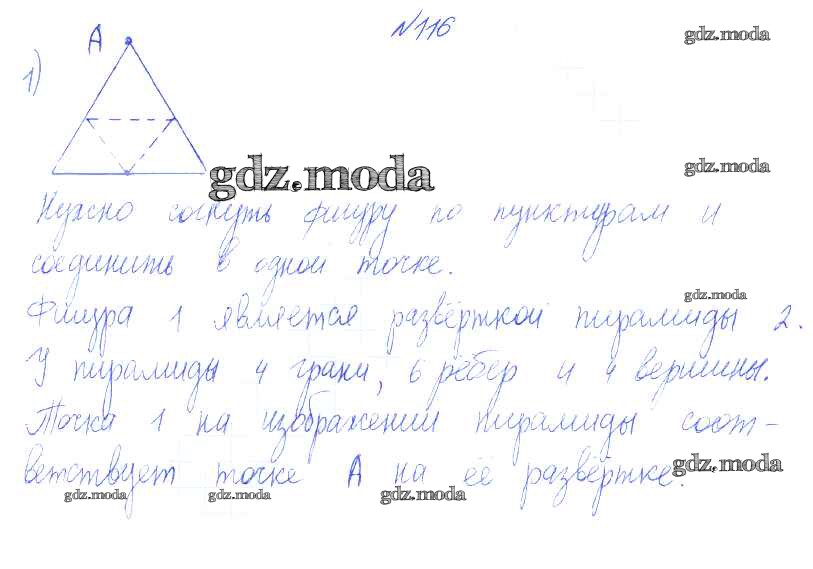 №116
gdz.moda
A
1)
gdz.moda
gdz.moda
Нужно согнуть фигуру по пунктирам и
соединить в одной точке.
gdz.moda
Фигура 1 является развёрткой пирамиды 2.
У пирамиды 4 грани, 6 рёбер и 4 вершины.
Точка 1 на изображении пирамиды соот-
ветствует точке А на её развёртке.
gdz.moda
gdz.moda
gdz.moda
gdz.moda